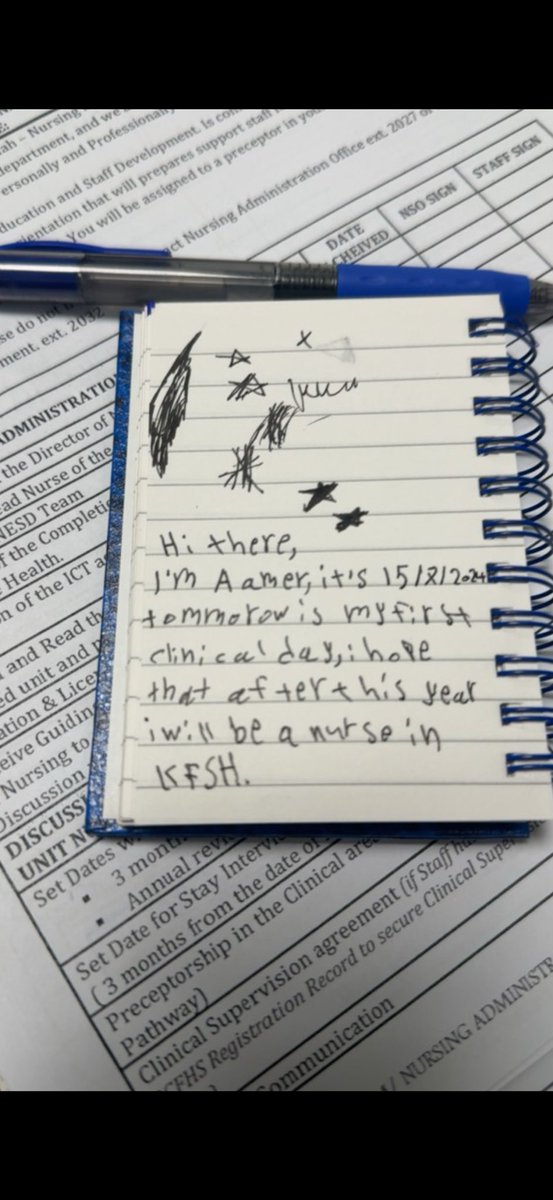 ah – Nursing
department, and we a
ersonally and Professionally
ducation and Staff Development. Is con
orientation that will prepares support staff
You will be assigned to a preceptor in you
ct Nursing Administration Office ext. 2027 o
DATE
NSO SIGN
STAFF SIGN
se do not
ment, ext. 2032
ADMINISTRATIO
the Director of
ead Nurse of the
NESD Team
f the Completi
e Health.
on of the ICT a
Hi there,
I'm Aamer, it's 15/8/2024
tommorow is my first
clinical day, i hope
that after this year
i will be a nurse in
KFSH.
and Read th
ed unit and
ation & Lice
eive Guidin
Nursing to
Discussion
DISCUSS
UNIT N
Set Dates w
▪ 3 mont
▪ Annual revi
Set Date for Stay Intervi
( 3 months from the date of
Preceptorship in the Clinical area
Pathway)
Clinical Supervision agreement (if Staff ha
CFHS Registration Record to secure Clinical Super
ommunication
/ NURSING ADMINISTR